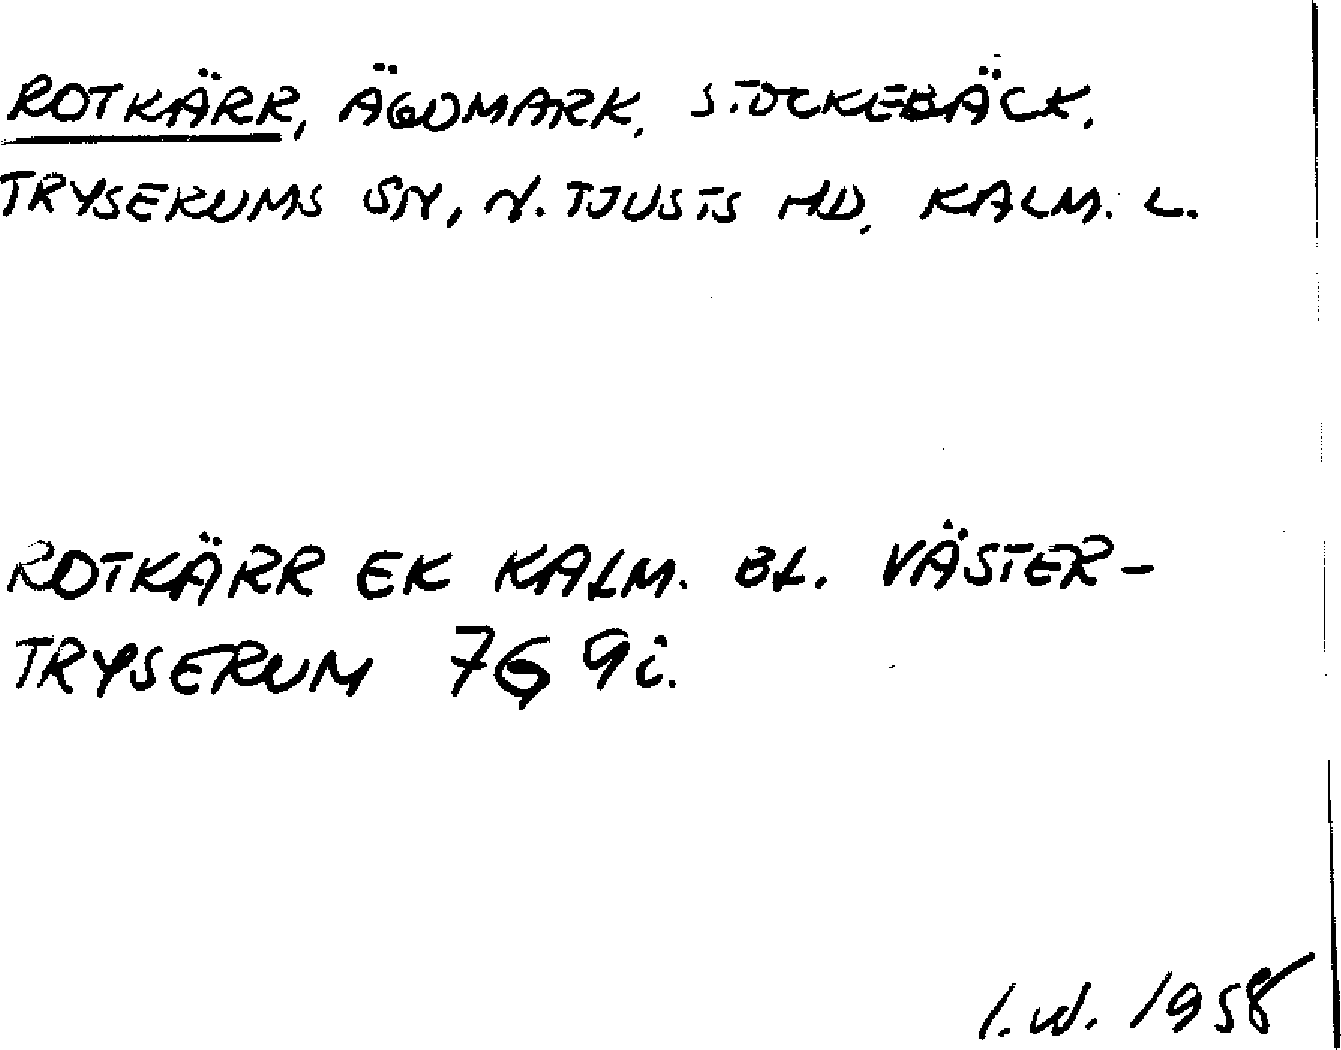 ROTKÄRR, ÄGOMARK, STOCKEBÄCK,
TRYSERUMS SN, N. TJUSTS HD, KALM. L.
ROTKÄRR EK KALM. BL. VÄSTER-
TRYSERUM 7G 9i.
I.W. 1958